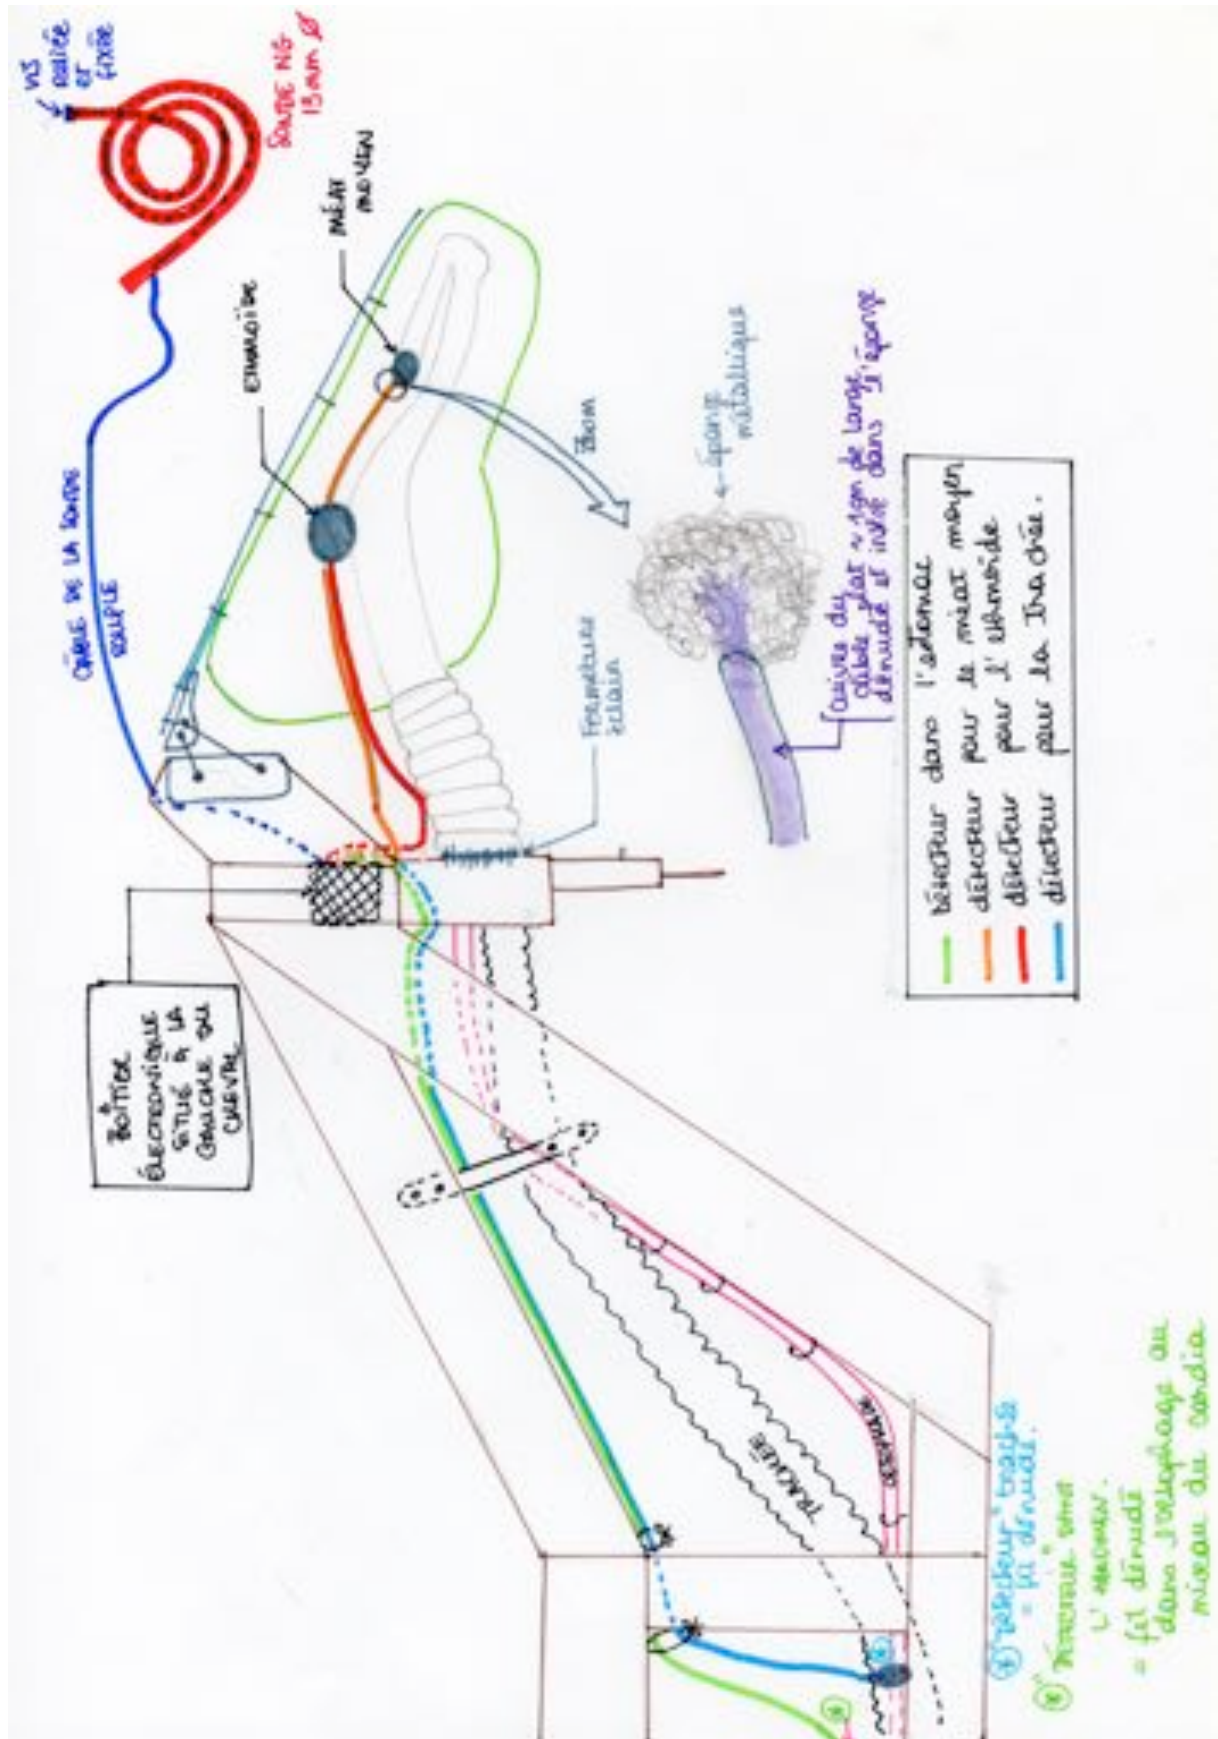 VIS
reliée
et
fixée
SONDE NG
13 mm Ø
CÂBLE DE LA SONDE
SOUPLE
ETHMOÏDE
MÉAT
MOYEN
Zoom
Éponge
métallique
Cuivre du
câble plat ~ 1cm de large
dénudé et inséré dans l'éponge
Fermeture
éclair
BOÎTIER
ÉLECTRONIQUE
SITUÉ À LA
GAUCHE DU
CHEVAL
Détecteur dans l'estomac
détecteur pour le méat moyen
détecteur pour l'ethmoïde
détecteur pour la trachée.
TRACHÉE
OESOPHAGE
"détecteur" trachée
= fil dénudé.
"Détecteur" dans
L'
= fil dénudé
dans l'oesophage au
niveau du cardia